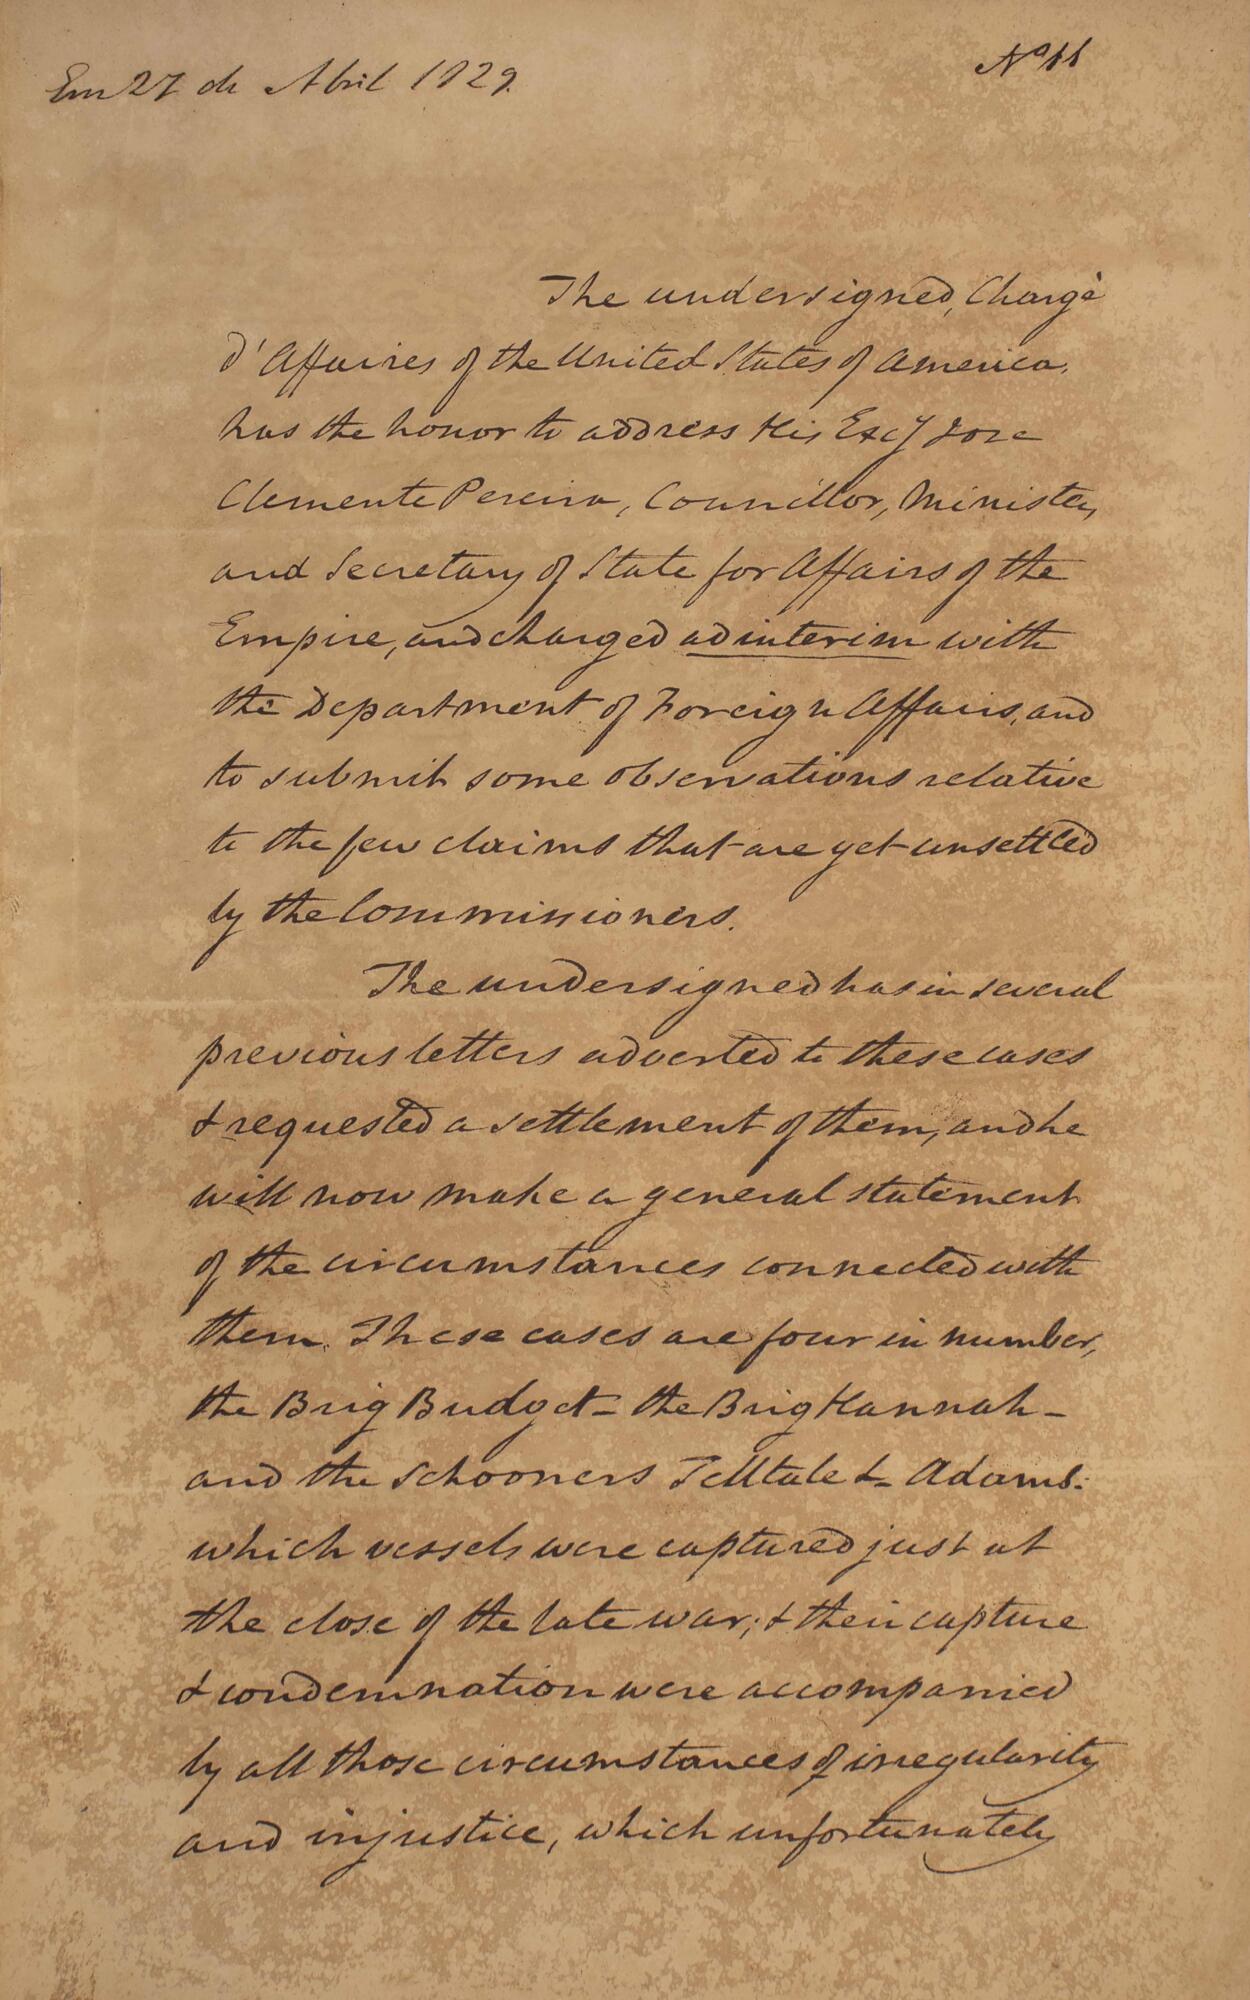 Em 27 de Abril 1829.
Nº 11
The undersigned, Chargé
d'Affaires of the United States of America,
has the honor to address His Excy Jose
Clemente Pereira, Councillor, Minister,
and Secretary of State for Affairs of the
Empire, and charged ad interim with
the Department of Foreign Affairs, and
to submit some observations relative
to the few claims that are yet unsettled
by the Commissioners.
The undersigned has in several
previous letters adverted to these cases
& requested a settlement of them, and he
will now make a general statement
of the circumstances connected with
them. These cases are four in number,
the Brig Budget – the Brig Hannah –
and the Schooners Telltale & Adams:
which vessels were captured just at
the close of the late war; & their capture
& condemnation were accompanied
by all those circumstances of irregularity
and injustice, which unfortunately